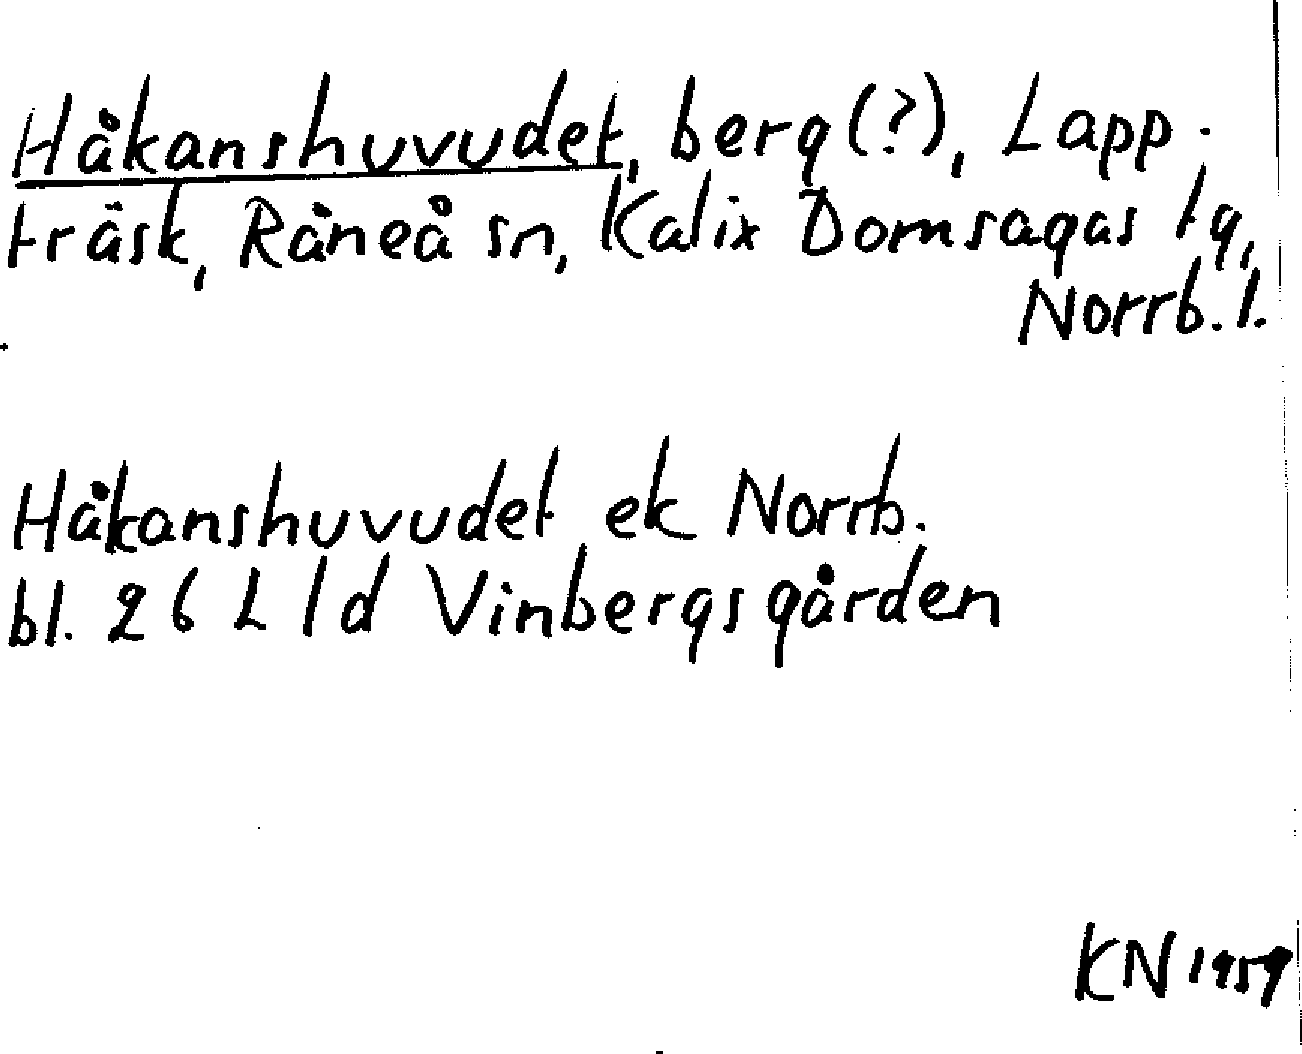 Håkanshuvudet, berg (?), Lapp-
träsk, Råneå sn, Kalix Domsagas tg,
Norrb. l.
Håkanshuvudet ek Norrb.
bl. 26 L ld Vinbergsgården
KN 1959